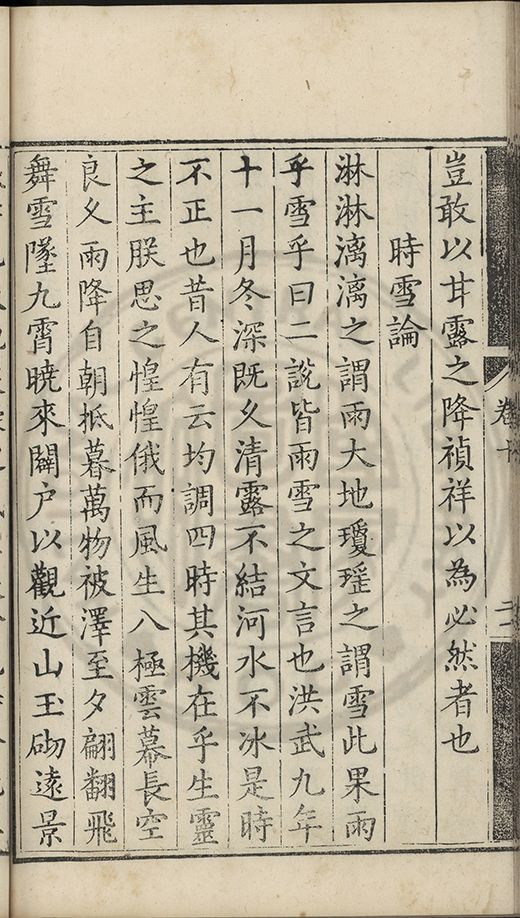 豈敢以甘露之降禎祥以為必然者也
時雪論
淋淋漓漓之謂雨大地瓊瑤之謂雪此果雨
乎雪乎曰二說皆雨雪之文言也洪武九年
十一月冬深既久清露不結河水不冰是時
不正也昔人有云均調四時其機在乎生靈
之主朕思之惶惶俄而風生八極雲幕長空
良久雨降自朝抵暮萬物被澤至夕翩翻飛
舞雪墜九霄曉來闢户以觀近山玉砌遠景
卷十
二